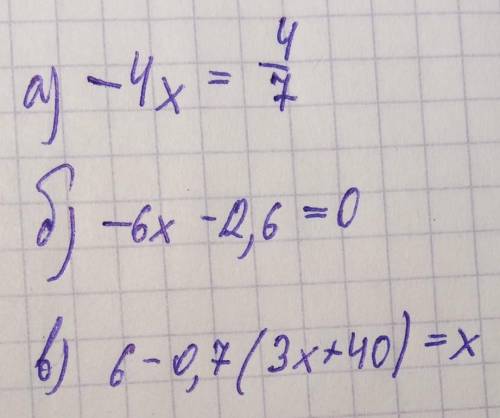 а) -4x = 4/7
б) -6x - 2,6 = 0
в) 6 - 0,7(3x+40) = x